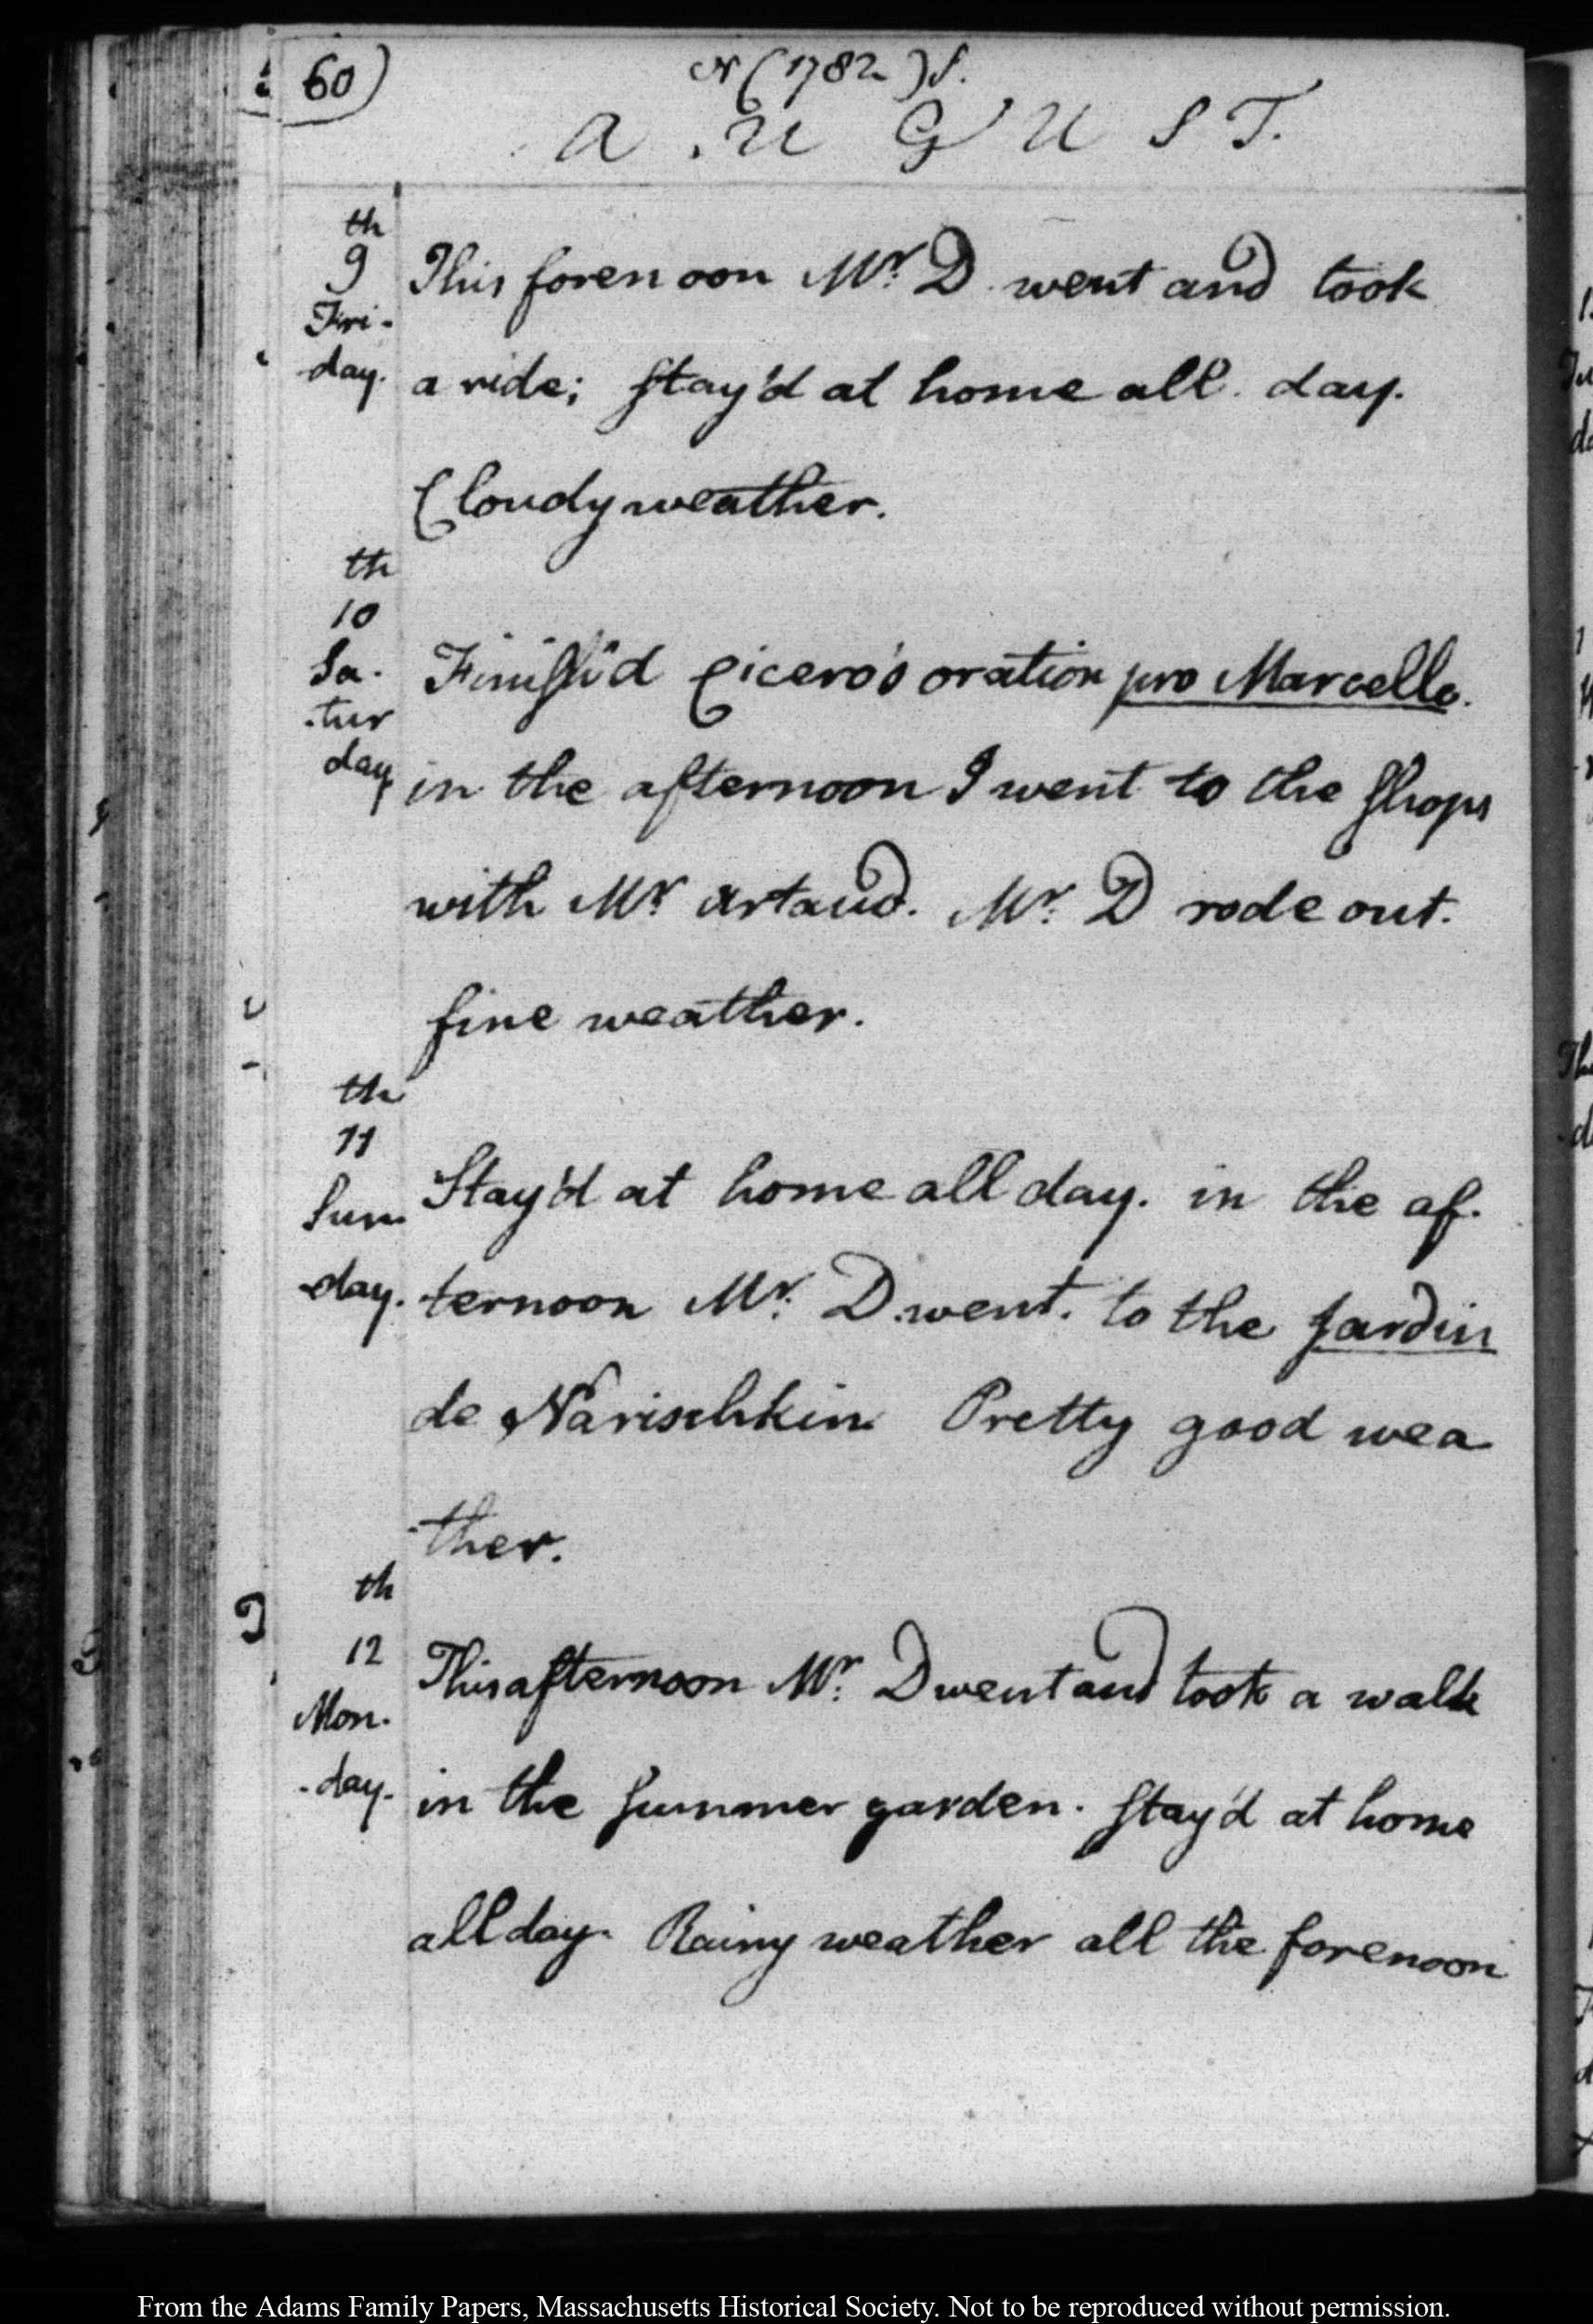 60)
N (1782) S.
A U G U S T.
th
9
Fri-
day.
This forenoon Mr. D. went and took
a ride; stay'd at home all day.
Cloudy weather.
th
10
Sa-
-tur
day
Finish'd Cicero's oration pro Marcello.
in the afternoon I went to the shops
with Mr. Artaud. Mr. D rode out.
fine weather.
th
11
Sun
-day.
Stay'd at home all day. in the af-
ternoon Mr. D. went to the Jardin
de Narischkin Pretty good wea
-ther.
th
12
Mon-
-day.
This afternoon Mr. D went and took a walk
in the summer garden. stay'd at home
all day. Rainy weather all the forenoon
From the Adams Family Papers, Massachusetts Historical Society. Not to be reproduced without permission.